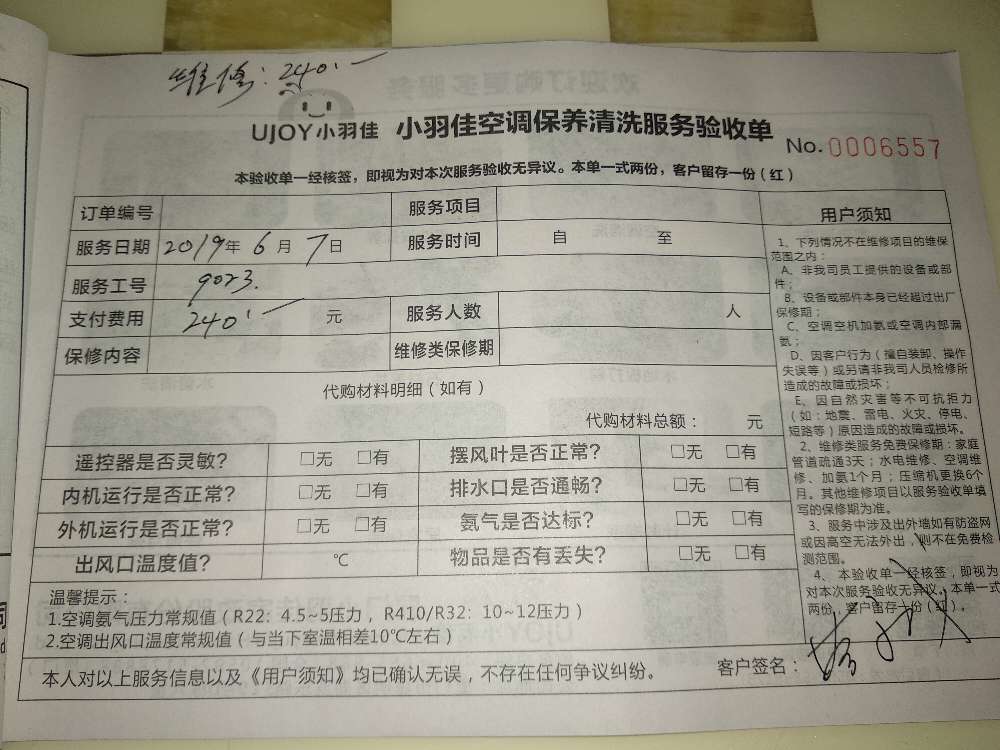 维修：240.一
UJOY小羽佳 小羽佳空调保养清洗服务验收单 No.0006557
本验收单一经核签，即视为对本次服务验收无异议。本单一式两份，客户留存一份（红）
订单编号 服务项目
服务日期 2019年 6月 7日 服务时间 自 至
服务工号 9023.
支付费用 240.一 元 服务人数 人
保修内容 维修类保修期
代购材料明细（如有）
代购材料总额： 元
遥控器是否灵敏？ □无 □有 摆风叶是否正常？ □无 □有
内机运行是否正常？ □无 □有 排水口是否通畅？ □无 □有
外机运行是否正常？ □无 □有 氨气是否达标？ □无 □有
出风口温度值？ ℃ 物品是否有丢失？ □无 □有
温馨提示：
1.空调氨气压力常规值（R22：4.5~5压力，R410/R32：10~12压力）
2.空调出风口温度常规值（与当下室温相差10℃左右）
本人对以上服务信息以及《用户须知》均已确认无误，不存在任何争议纠纷。 客户签名：
用户须知
1、下列情况不在维修项目的维保
范围之内：
A、非我司员工提供的设备或部
件；
B、设备或部件本身已经超过出厂
保修期；
C、空调空机加氨或空调内部漏
氨；
D、因客户行为（擅自装卸、操作
失误等）或另请非我司人员检修所
造成的故障或损坏；
E、因自然灾害等不可抗拒力
（如：地震、雷电、火灾、停电、
短路等）原因造成的故障或损坏。
2、维修类服务免费保修期：家庭
管道疏通3天；水电维修、空调维
修、加氨1个月；压缩机更换6个
月。其他维修项目以服务验收单填
写的保修期为准。
3、服务中涉及出外墙如有防盗网
或因高空无法外出，则不在免费检
测范围。
4、本验收单一经核签，即视为
对本次服务验收无异议。本单一式
两份，客户留存一份（红）。